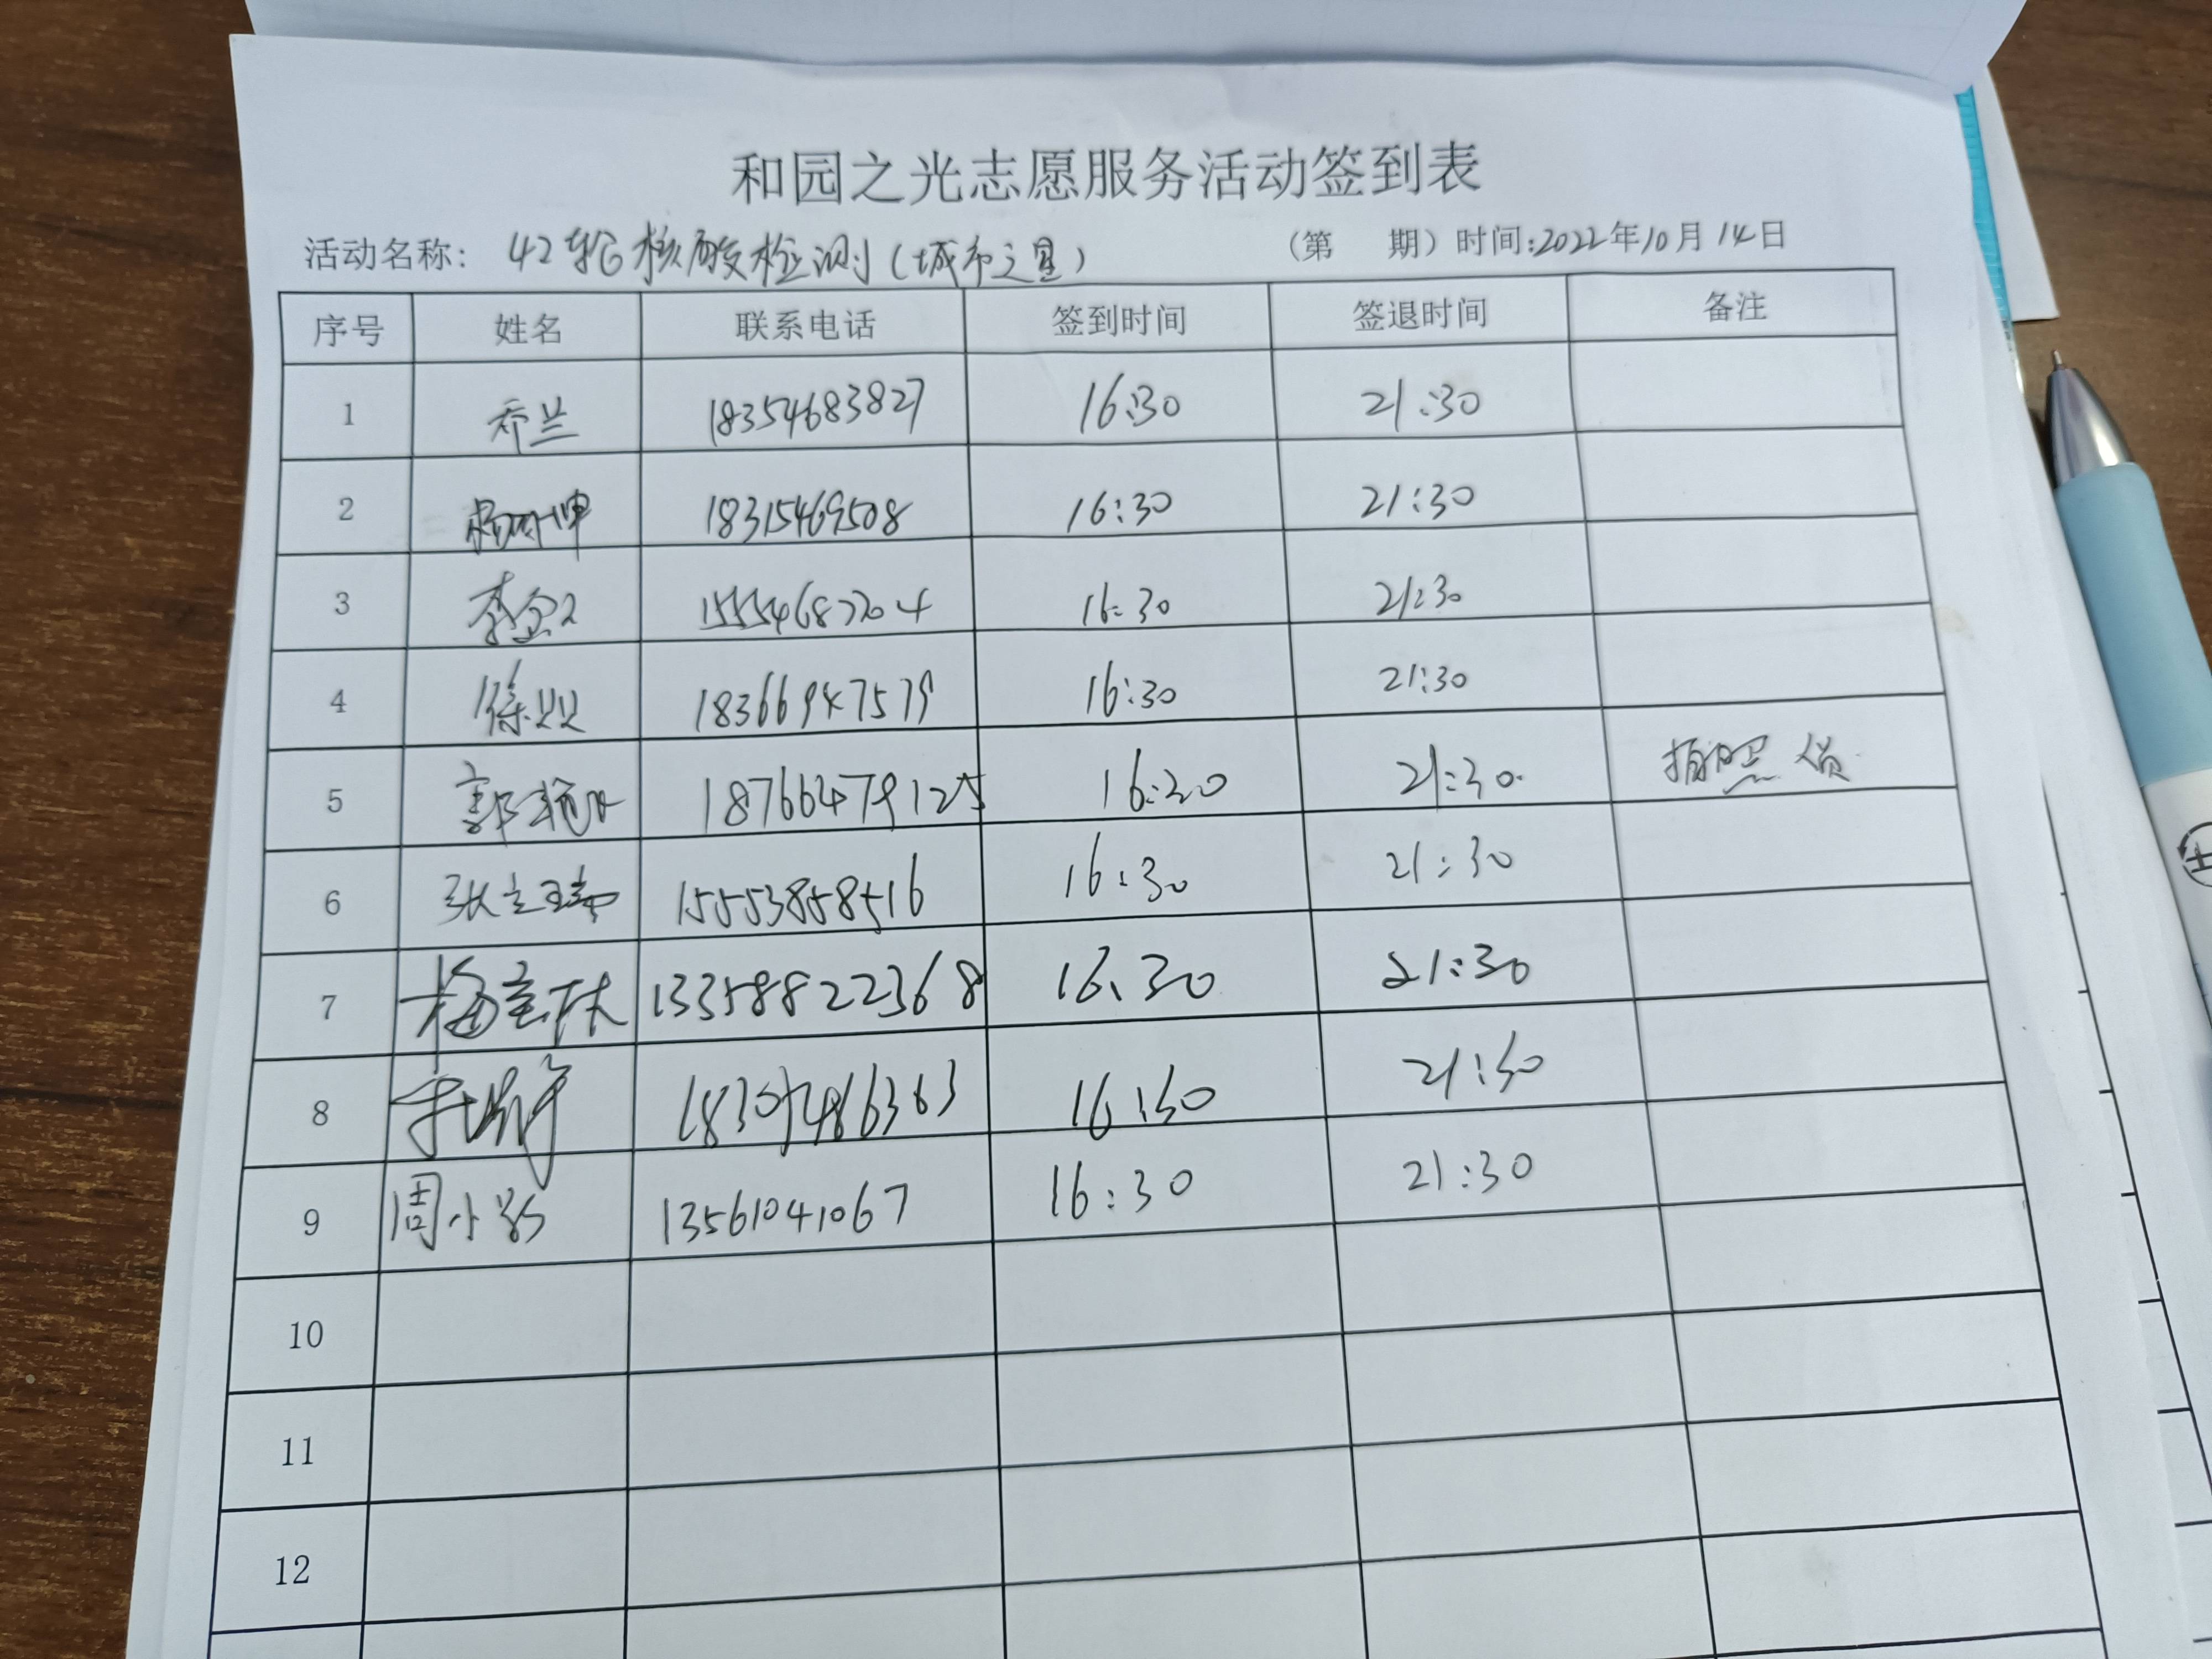 和园之光志愿服务活动签到表
活动名称： 42轮核酸检测（城市之星） （第 期）时间：2022年10月14日
序号 姓名 联系电话 签到时间 签退时间 备注
1 18354683827 16:30 21:30
2 18315469508 16:30 21:30
3 15554687204 16:30 21:30
4 徐 18366947579 16:30 21:30
5 郭艳 18766479125 16:30 21:30 拍照 员
6 张立 15553858516 16:30 21:30
7 梅 13358822368 16:30 21:30
8 16:30 21:30
9 周小 13561041067 16:30 21:30
10
11
12